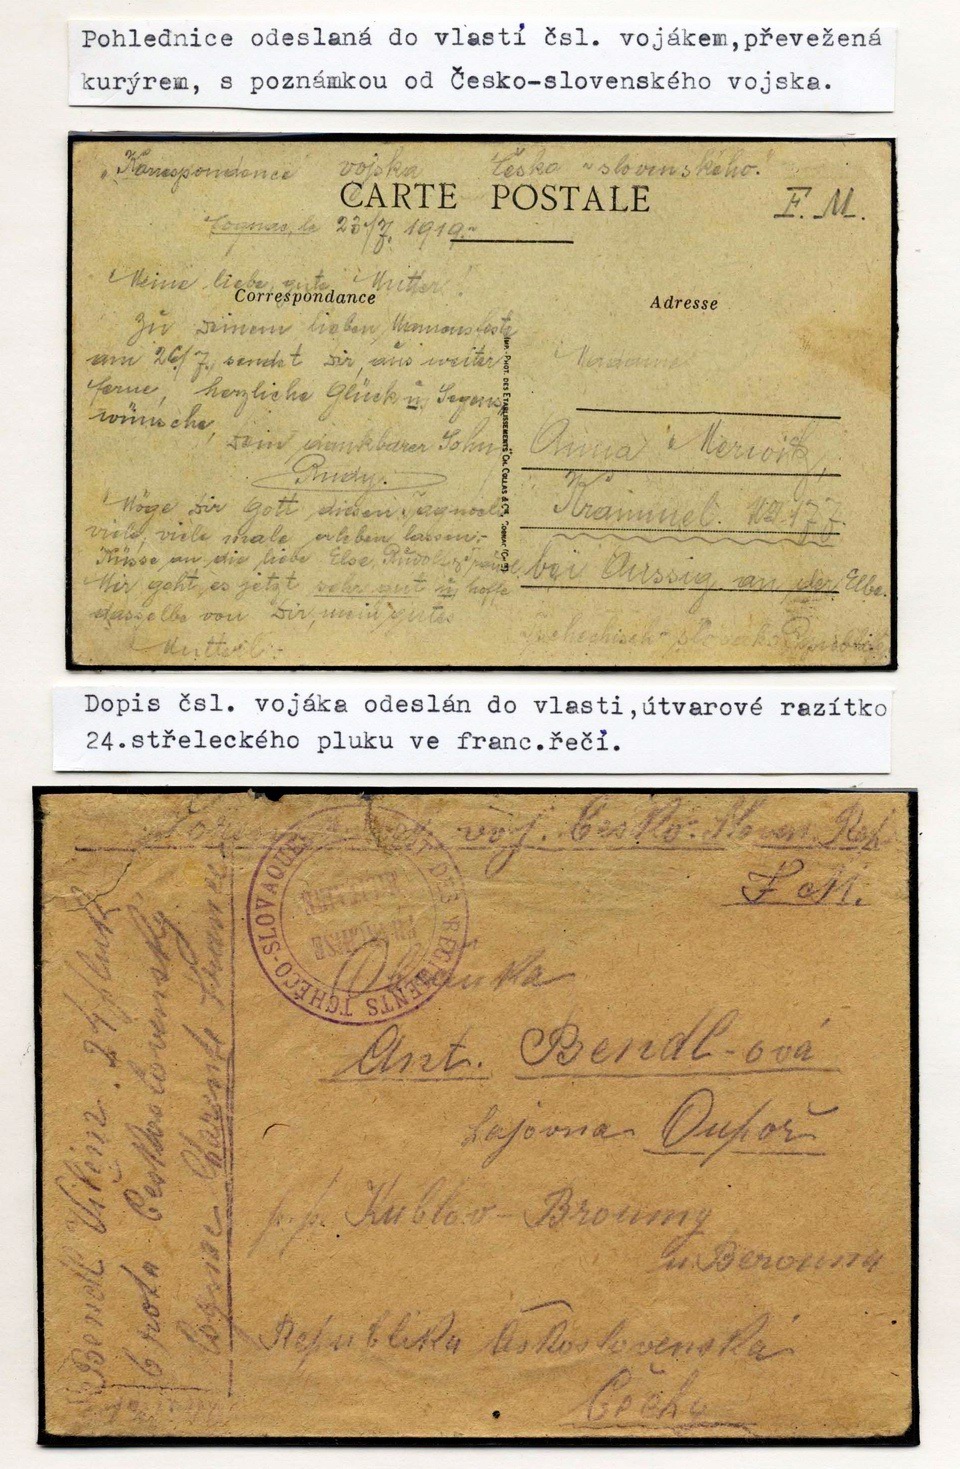 Pohlednice odeslaná do vlasti čsl. vojákem,převežená
kurýrem, s poznámkou od Česko-slovenského vojska.
"Korrespondence vojska Česko-slovenského."
CARTE POSTALE
F. M.
Cognac, le 23/7. 1919.
Meine liebe, gute Mutter!
Correspondance
Adresse
Zu Deinem lieben Namensfeste
am 26./7. sendet Dir, aus weiter
ferne, herzliche Glück u. Segens
wünsche,
Dein dankbarer Sohn
Rudy.
Möge Dir Gott diesen Tag noch
viele, viele male erleben lassen.
Küsse an die liebe Else, Rudolf
Mir geht es jetzt sehr gut u. hoffe
dasselbe von Dir, mein gutes
Mutterl.
IMP.-PHOT. DES ETABLISSEMENTS CH. COLLAS & Cie, COGNAC
Madame
Anna
Krammel. No 177.
bei Aussig an der Elbe.
Tschechisch-slovak. Republik
Dopis čsl. vojáka odeslán do vlasti,útvarové razítko
24.střeleckého pluku ve franc.řečí.
voj. Česko. Sloven. Rep
F. M.
DES REGIMENTS TCHECO-SLOVAQUES
Ant. Bendl-ová
hajovna Oupoř
p. p. Kublov-Broumy
u Berouna
Republika Československá
Čechy
Bendl 24 pluk
6 rota Československý
Cognac Charente France